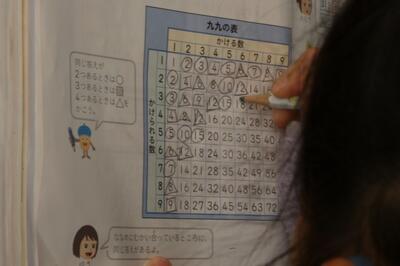 九九の表
かける数
1 2 3 4 5 6 7 8 9
かけられる数
1 1 2 3 4 5 6 7 8 9
2 2 4 6 8 10 12 14 16
3 3 6 9 12 15 18 21
4 4 8 12 16 20 24 28 32
5 5 10 15 20 25 30 35 40
6 6 12 18 24 30 36 42 48
7 7 14 21 28 35 42 49 56
8 8 16 24 32 40 48 56 64
9 9 18 27 36 45 54 63 72
同じ答えが
2つあるときは○
3つあるときは□
4つあるときは△を
かこう。
ななめにむかい合っているところに、
同じ答えがあるよ。